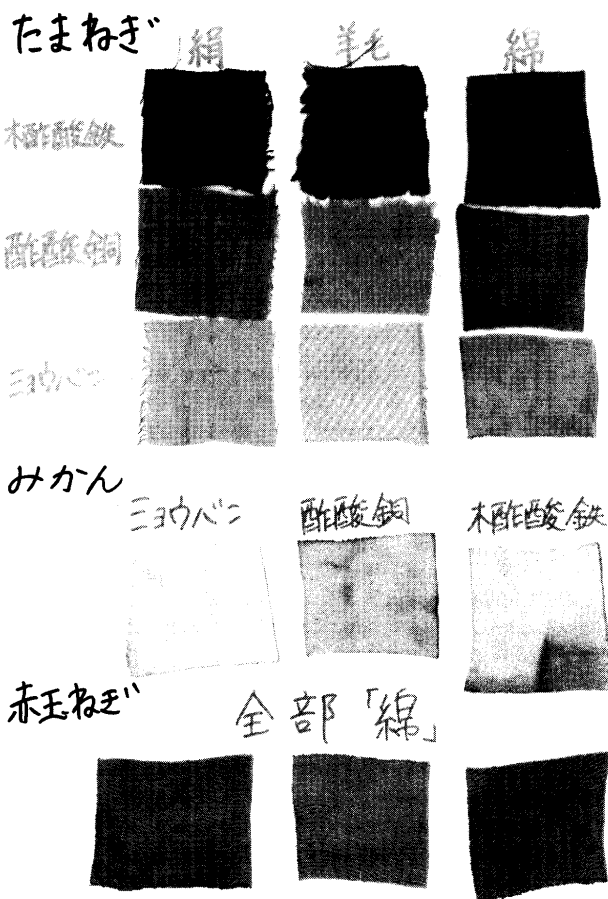 たまねぎ
絹 羊毛 綿
木酢酸鉄
酢酸銅
ミョウバン
みかん
ミョウバン 酢酸銅 木酢酸鉄
赤玉ねぎ
全部「綿」